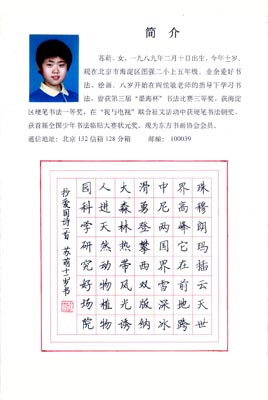 简 介
苏萌,女,一九八九年二月十日出生,今年十岁,
现在北京市海淀区图强二小上五年级。业余爱好书
法、绘画。八岁开始在 锐敏老师的指导下学习书
法,曾获第三届“墨海杯”书法比赛三等奖,获海淀
区硬笔书法一等奖,在“我与电视”联合征文活动中获硬笔书法铜奖,
获首届全国少年书法临帖大赛状元奖。现为东方书画协会会员。
通信地址:北京132信箱128分箱 邮编:100039
珠穆朗玛插云天世
界高峰它在前地跨
中尼两国界雪深冰
滑勇登攀西双版纳
大森林热带风光诱
人进天然动物植物
园科学研究好场院
抄爱国诗一首 苏萌十岁书